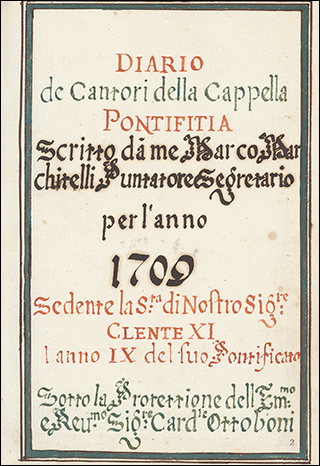 DIARIO
de Cantori della Cappella
PONTIFITIA
Scritto dà me Marco Mar
chitelli Puntatore Segretario
per l'anno
1709
Sedente la S.ta di Nostro Sig.re
CLENTE XI
l anno IX del suo Pontificato
Sotto la Protettione dell Em.mo
e Reu.mo Sig.re Card.le Ottoboni
2